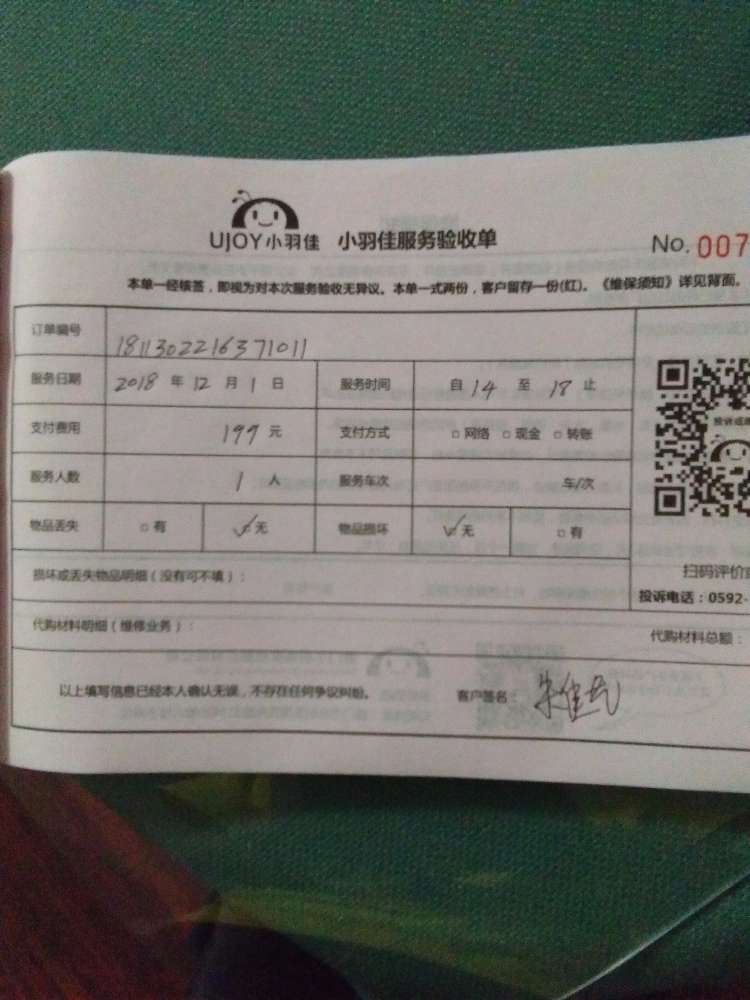 UJOY小羽佳 小羽佳服务验收单 No. 007
本单一经核签，即视为对本次服务验收无异议。本单一式两份，客户留存一份(红)。《维保须知》详见背面。
订单编号 1811302216371011
服务日期 2018 年 12 月 1 日 服务时间 自 14 至 18 止
支付费用 199 元 支付方式 □ 网络 □ 现金 □ 转账
服务人数 1 人 服务车次 车/次
物品丢失 □ 有 ☑ 无 物品损坏 ☑ 无 □ 有
损坏或丢失物品明细（没有可不填）：
扫码评价
投诉电话：0592-
代购材料明细（维修业务）：
代购材料总额：
以上填写信息已经本人确认无误，不存在任何争议纠纷。 客户签名：